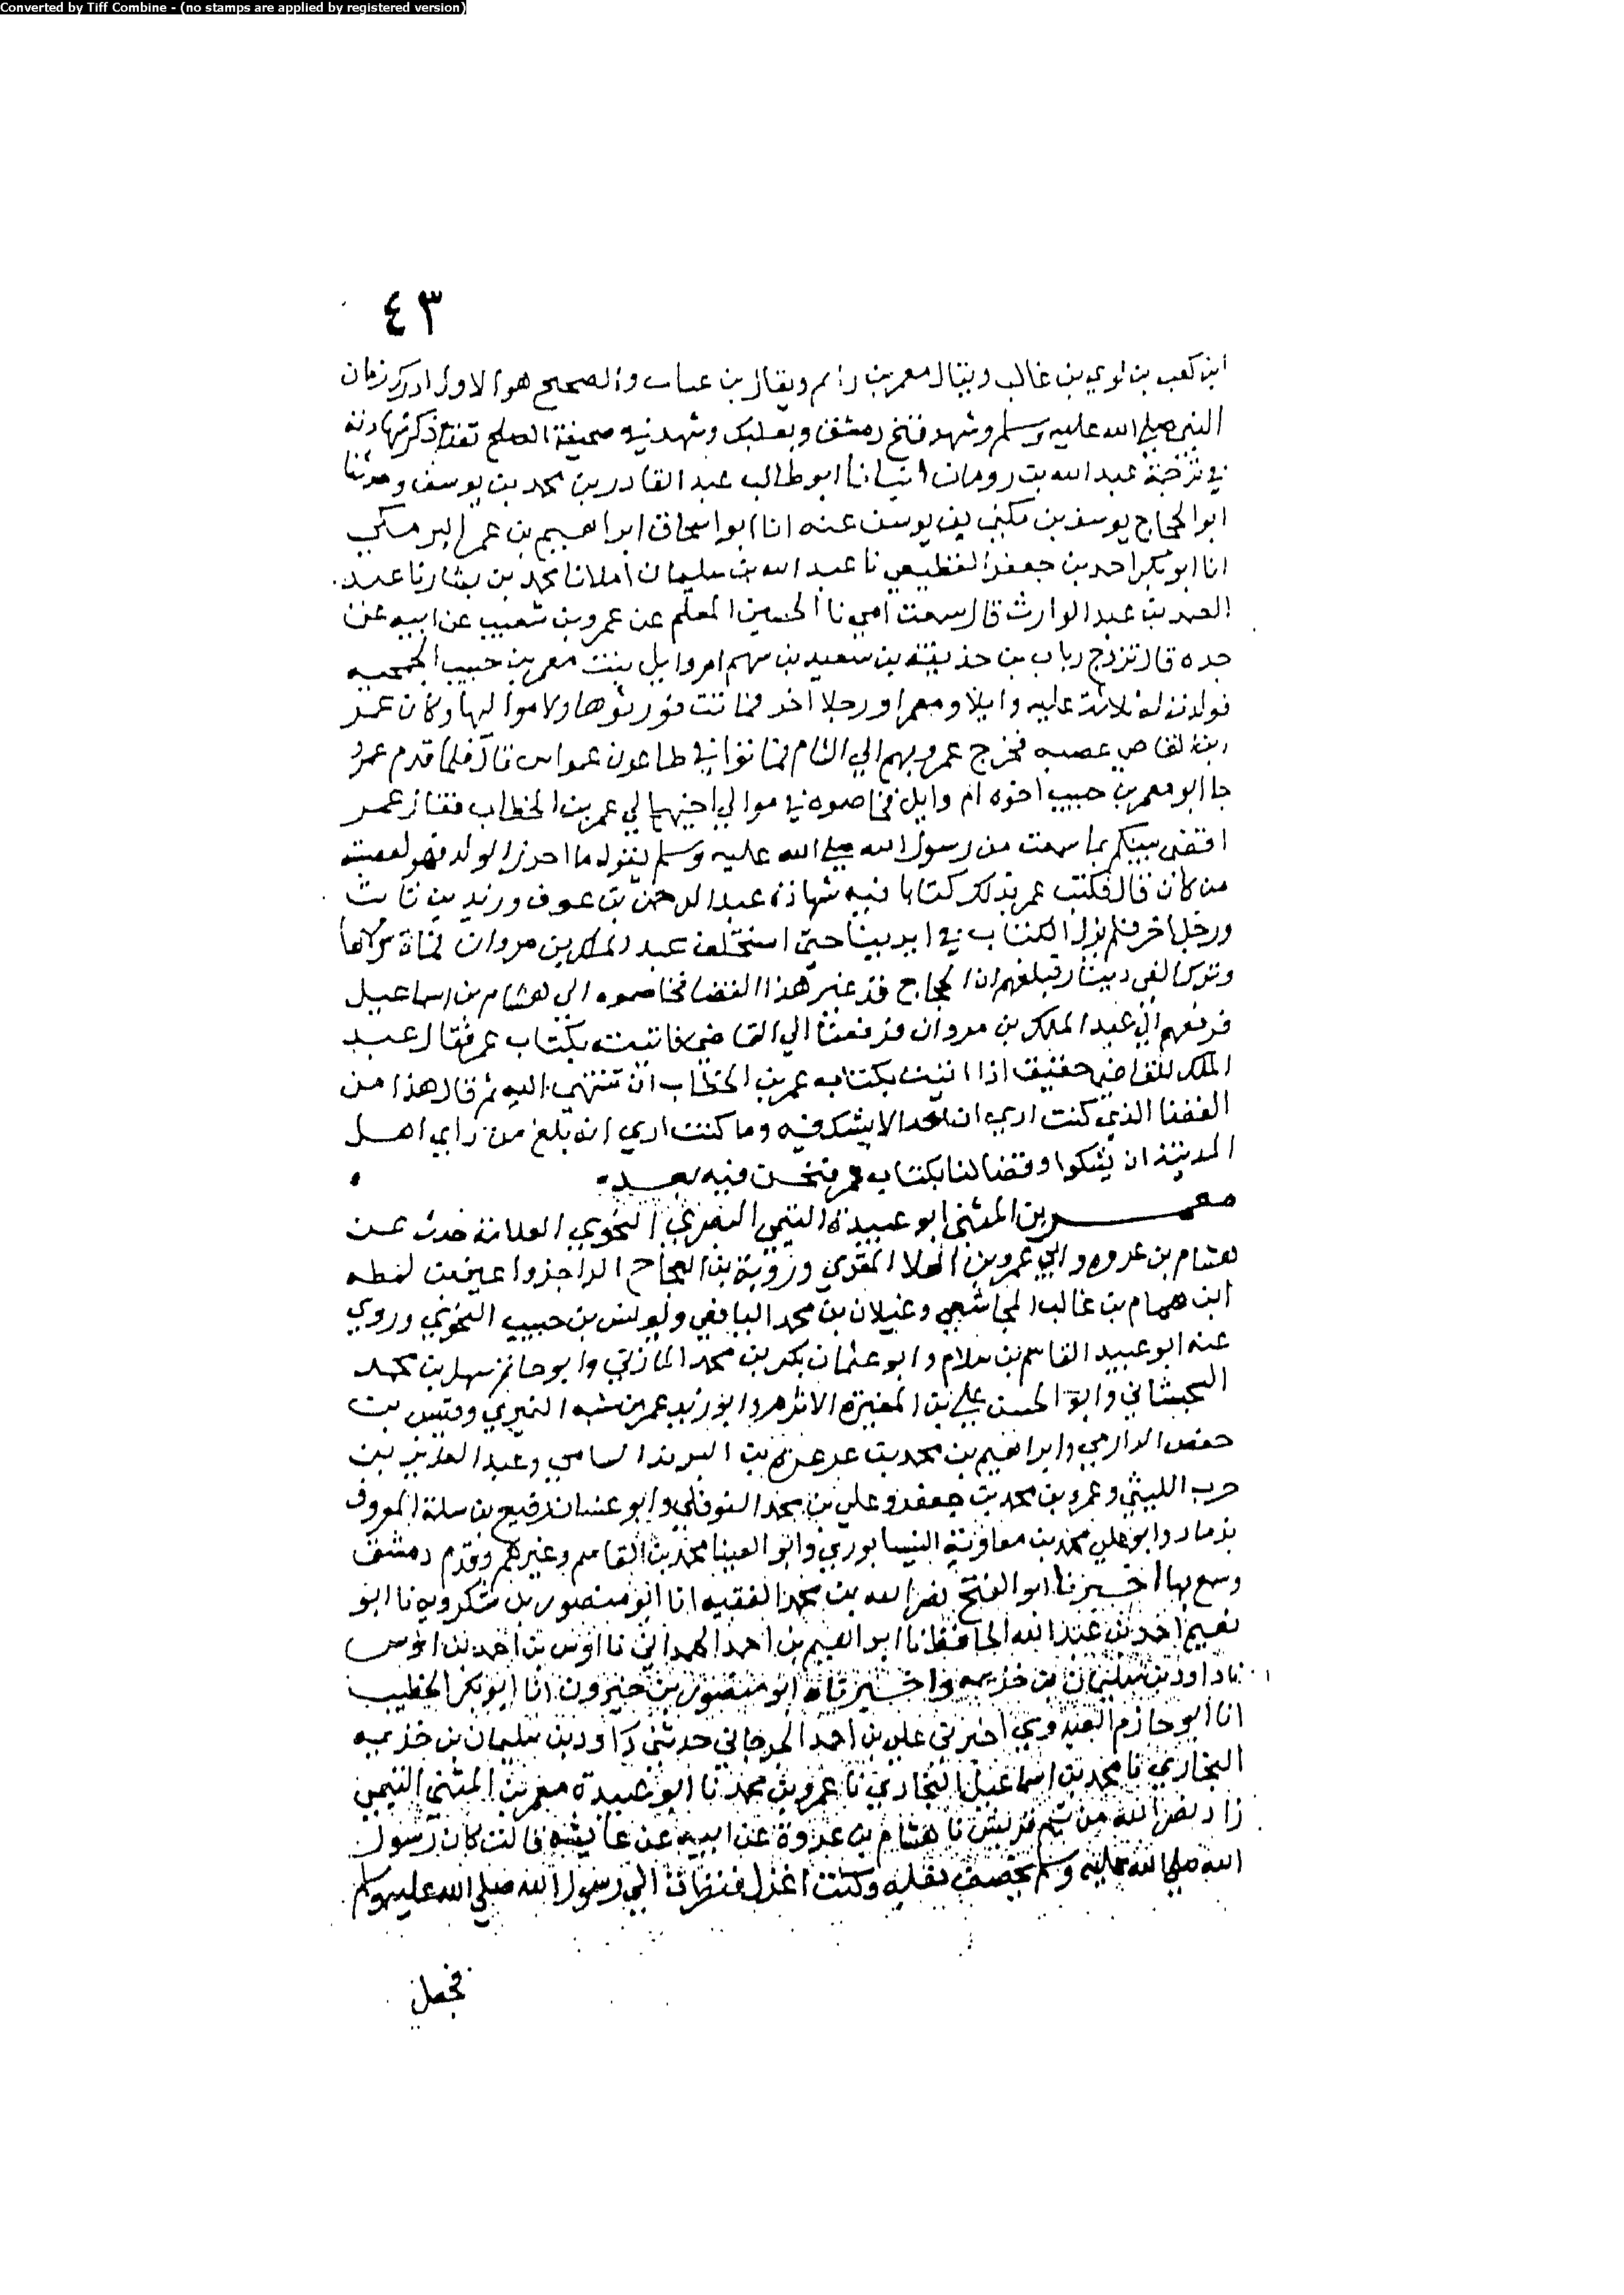 Converted by Tiff Combine - (no stamps are applied by registered version)
٤٣
ابن كعب بن لوي بن غالب ويقال معمر بن رام ويقال بن عباب والصحيح هو الاول ادرك زمان
النبي صلى الله عليه وسلم وشهد فتح دمشق وبعلبك وشهد فيه صحيفة الصلح تقدم ذكر شهادته
في ترجمة عبد الله بن رومان انبانا ابو طالب عبد القادر بن محمد بن يوسف وحدثنا
ابو الحجاج يوسف بن مكي بن يوسف عنه انا ابو اسحاق ابراهيم بن عمر البرمكي
انا ابو بكر احمد بن جعفر القطيعي نا عبد الله بن سليمان املانا محمد بن بشار نا عبد
الصمد بن عبد الوارث قال سمعت ابي نا الحسين المعلم عن عمرو بن شعيب عن ابيه عن
جده قال تزوج رباب بن حذيفة بن سعيد بن سهم ام وايل بنت معمر بن حبيب الجمحيه
فولدت له ثلاثة عليه وايلا ومعمرا ورجلا اخر فماتت فورثوها ولا مواليها وكان عمر
بن العاص عصبه فخرج عمرو بهم الي الشام فماتوا في طاعون عمواس قال فلما قدم عمرو
جا ابو معمر بن حبيب اخوه ام وايل فخاصموه في موالي اختها الي عمر بن الخطاب فقال عمر
اقضي بينكم بما سمعت من رسول الله صلى الله عليه وسلم يقول ما احرز الولد فهو لعصبته
من كان قال فكتب عمر بذلك كتابا فيه شهادة عبد الرحمن بن عوف وزيد بن ثابت
ورجل اخر فلم يزل الكتاب في ايدينا حتى استخلف عبد الملك بن مروان فمات مولاها
وترك الفي دينار فبلغهم ان الحجاج قد غير هذا القضا فخاصموه الي هشام بن اسماعيل
فرفعهم الي عبد الملك بن مروان فرفعنا الي القاضي فاتيت بكتاب عمر فقال عبد
الملك للقاضي حقيق اذا اتيت بكتاب عمر بن الخطاب ان تنتهي اليه ثم قال هذا من
القضا الذي كنت اري ان احدا لا يشك فيه وما كنت اري انه بلغ من راي اهل
المدينة ان يشكوا وقضا لنا بكتاب عمر فنحن فيه بعد
معمر بن المثني ابو عبيدة التيمي البصري النحوي العلامة حدث عن
هشام بن عروه وابي عمرو بن العلا المقري وروبة بن العجاج الراجز واعين بن لبطه
ابن همام بن غالب المجاشعي وغيلان بن محمد اليافعي ويونس بن حبيب النحوي وروي
عنه ابو عبيد القاسم بن سلام وابو عثمان بكر بن محمد المازني وابو حاتم سهل بن محمد
السجستاني وابو الحسن علي بن المغيرة الاثرم وابو زيد عمر بن شبه النميري وقيس بن
حفص الدارمي وابراهيم بن محمد بن عرعرة بن البرند السامي وعبد العزيز بن
حرب الليثي وعمرو بن محمد بن جعفر وعلي بن محمد النوفلي وابو غسان رفيع بن سلمة المعروف
بدماد وابو علي محمد بن معاوية النيسابوري وابو العينا محمد بن القاسم وغيرهم وقدم دمشق
وسمع بها اخبرنا ابو الفتح نصر الله بن محمد الفقيه انا ابو منصور بن شكرويه نا ابو
نعيم احمد بن عبد الله الحافظ نا ابراهيم بن احمد الهمداني نا اوس بن احمد بن اوس
نا داود بن سليمان بن خزيمه واخبرناه ابو منصور بن خيرون انا ابو بكر الخطيب
انا ابو حازم العبدوي اخبرني علي بن احمد الجرجاني حدثني داود بن سليمان بن خزيمه
البخاري نا محمد بن اسماعيل البخاري نا عمرو بن محمد نا ابو عبيدة معمر بن المثني التيمي
زاد نصر الله من تيم قريش نا هشام بن عروة عن ابيه عن عايشه قالت كان رسول
الله صلي الله عليه وسلم يخصف نعله وكنت اغزل فنظرت الي رسول الله صلي الله عليه وسلم
فجعل